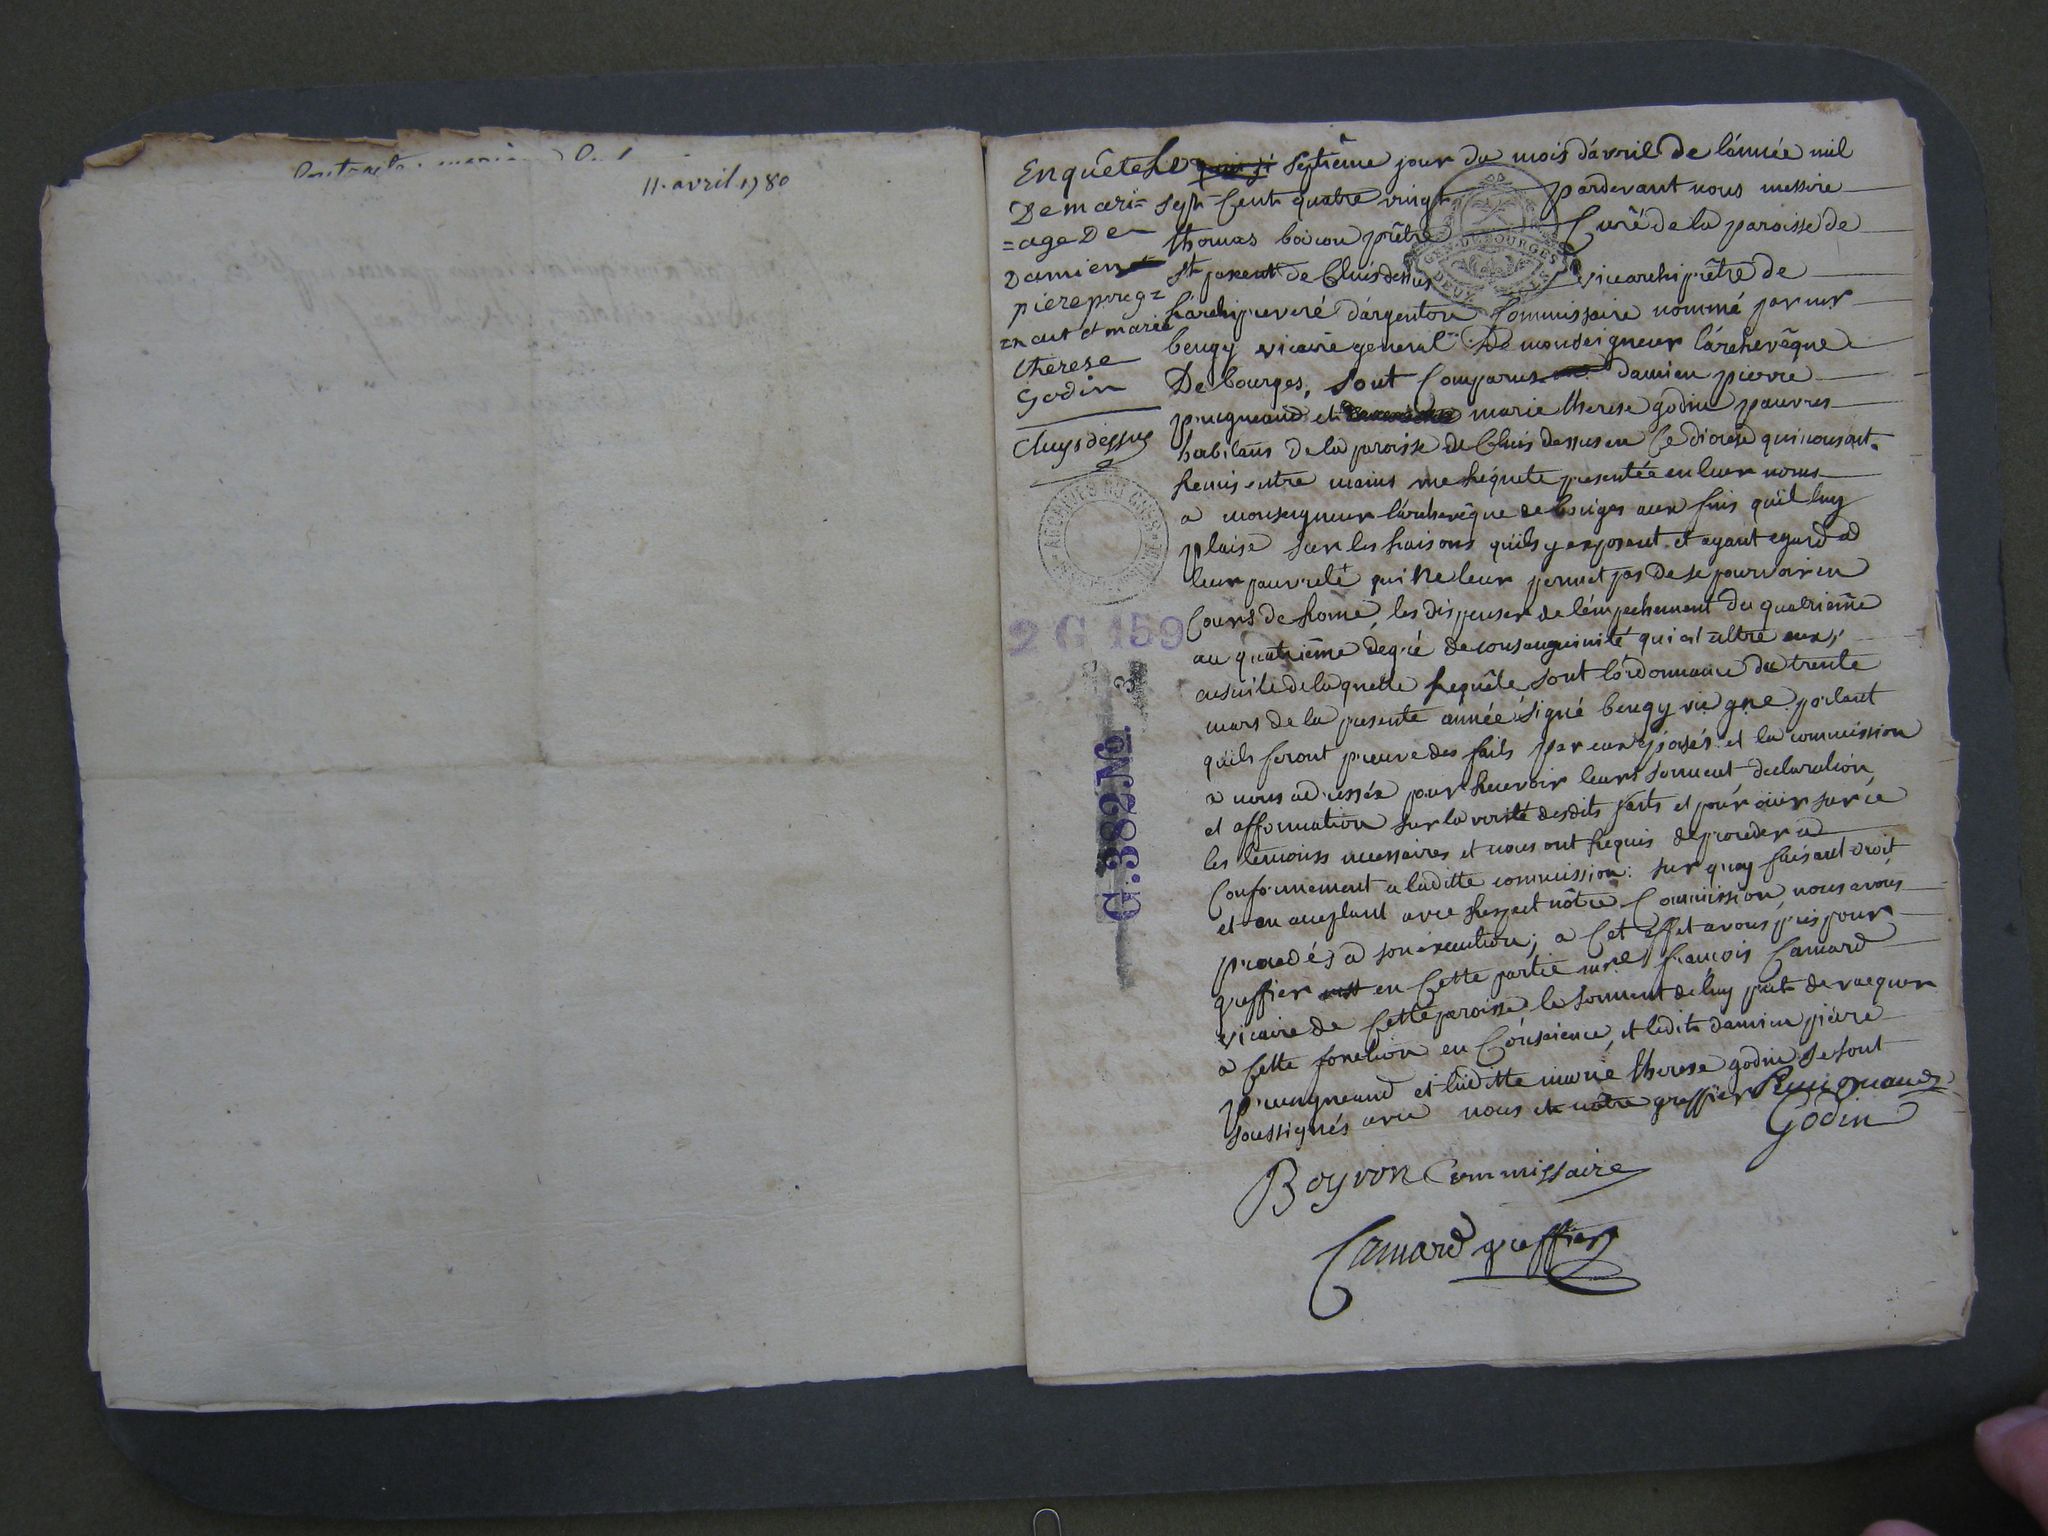 11. avril 1780
Enquête
De mari=
=age De
Damien
piere preg=
=naut et marie
therese
Godin
Cluys dessus
ARCHIVES DU CHER
2 G 159
G. 382 No. 3
GEN. DE BOURGES
DEUX
Le septiême jour du mois d'avril de l'année mil
sept Cent quatre vingt pardevant nous messire
thomas boiron prêtre Curé de la paroisse de
st paxent de Cluis dessus vicearchiprêtre de
L'archipreveré d'argenton Commissaire nommé par mr
bengy vicaire general De monseigneur l'archevêque
De bourges, sont Comparus damien pierre
preugneaud et marie therese godin pauvres
habitans de la paroisse de Cluis dessus en Ce diocese qui nous ont
Remis entre mains une Requete presentée en leur noms
a monseigneur l'archevêque de bourges aux fins qu'il luy
plaise sur les Raisons qu'ils y exposent et ayant egard a
leur pauvreté qui Ne leur permet pas De se pourvoir en
Cours de Rome, les dispenser de l'émpechement du quatriême
au quatriême degré de consanguinité qui est entre eux,
ensuite de laquelle Requête sont l'ordonnance du trente
mars de la presente année signé bengy vic gne portant
qu'ils feront preuve des faits par eux éxposés et la commission
a nous adressée pour Recevoir leurs serment declaration
et affirmation sur la verité desdits faits et pour ouir sur ce
les temoins necessaires et nous ont Requis de proceder a
Conformement a laditte commission: sur quoy faisant droit
et en acceptant avec Respect nôtre Commission, nous avons
procedés a son éxecution; a Cet effet avons pris pour
greffier en Cette partie mre françois Camard
vicaire de Cette paroisse le serment de luy prit de vacquer
a Cette fonction en Conscience, et ledit damien pierre
preungneaud et laditte marie therese godin se sont
soussignés avec nous et nôtre greffier Preugneaud
Godin
Boyron Commissaire
Camard greffier